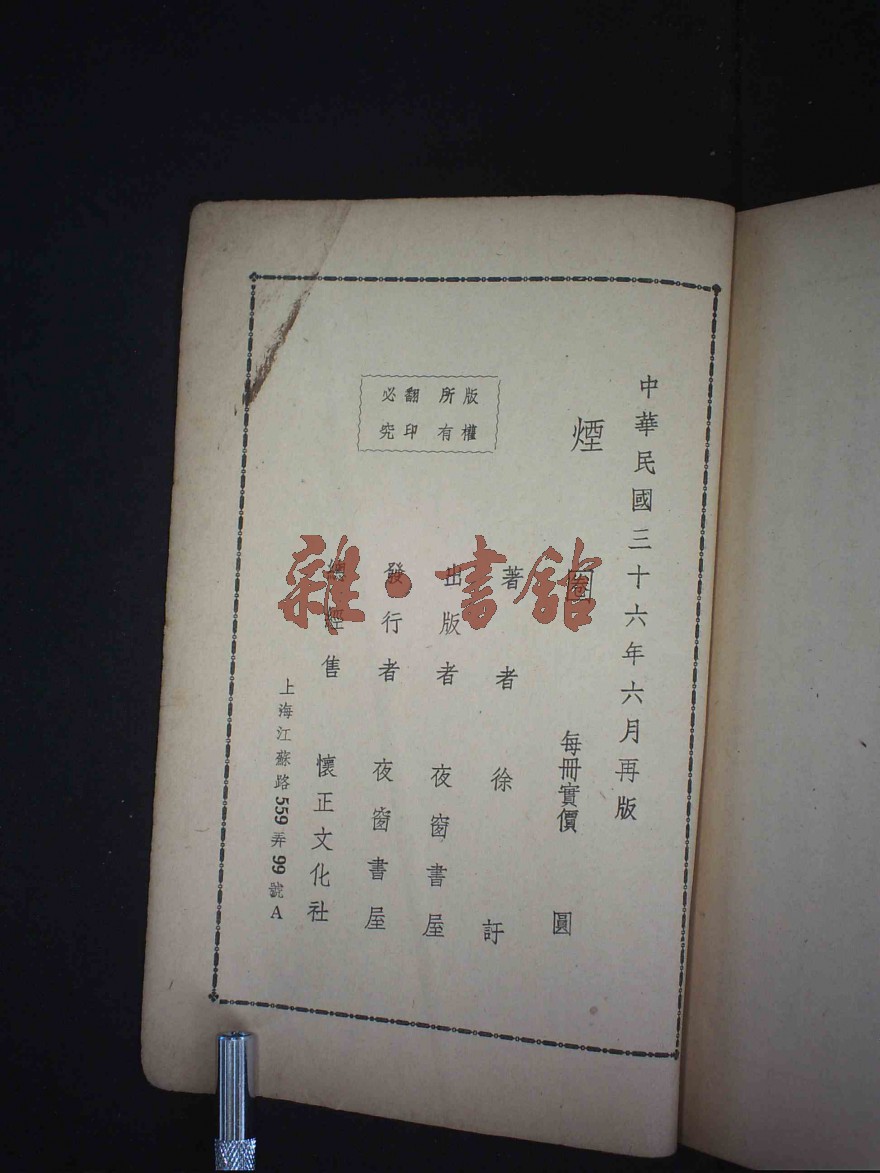 中華民國三十六年六月再版
煙圈
每冊實價 圓
著者 徐訏
出版者 夜窗書屋
發行者 夜窗書屋
總經售 懷正文化社
上海江蘇路559弄99號A
版權
所有
翻印
必究
雜·書館